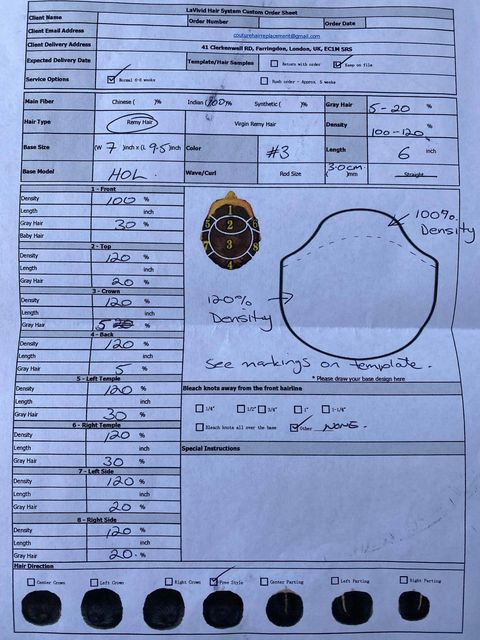 LaVivid Hair System Custom Order Sheet
Client Name Order Number Order Date
Client Email Address couturehairreplacement@gmail.com
Client Delivery Address 41 Clerkenwell RD, Farringdon, London, UK, EC1M 5RS
Expected Delivery Date Template/Hair Samples Return with order Keep on file
Service Options Normal 6-8 weeks Rush order - Approx. 5 weeks
Main Fiber Chinese ( )% Indian (100)% Synthetic ( )% Gray Hair 5-20 %
Hair Type Remy Hair Virgin Remy Hair Density 100-120 %
Base Size (W 7 )inch x (L 9.5 )inch Color #3 Length 6 inch
Base Model HOL. Wave/Curl Rod Size 3.0cm ( )mm Straight
1 - Front
Density 100 %
Length inch
Gray Hair 30 %
Baby Hair
2 - Top
Density 120 %
Length inch
Gray Hair 20 %
3 - Crown
Density 120 %
Length inch
Gray Hair 5 %
4 - Back
Density 120 %
Length inch
Gray Hair 5 %
5 - Left Temple
Density 120 %
Length inch
Gray Hair 30 %
6 - Right Temple
Density 120 %
Length inch
Gray Hair 30 %
7 - Left Side
Density 120 %
Length inch
Gray Hair 20 %
8 - Right Side
Density 120 %
Length inch
Gray Hair 20. %
1
5 2 6
7 3 8
4
100% Density
120% Density
See markings on template.
* Please draw your base design here
Bleach knots away from the front hairline
1/4" 1/2" 3/4" 1" 1-1/4"
Bleach knots all over the base Other NONE.
Special Instructions
Hair Direction
Center Crown Left Crown Right Crown Free Style Center Parting Left Parting Right Parting